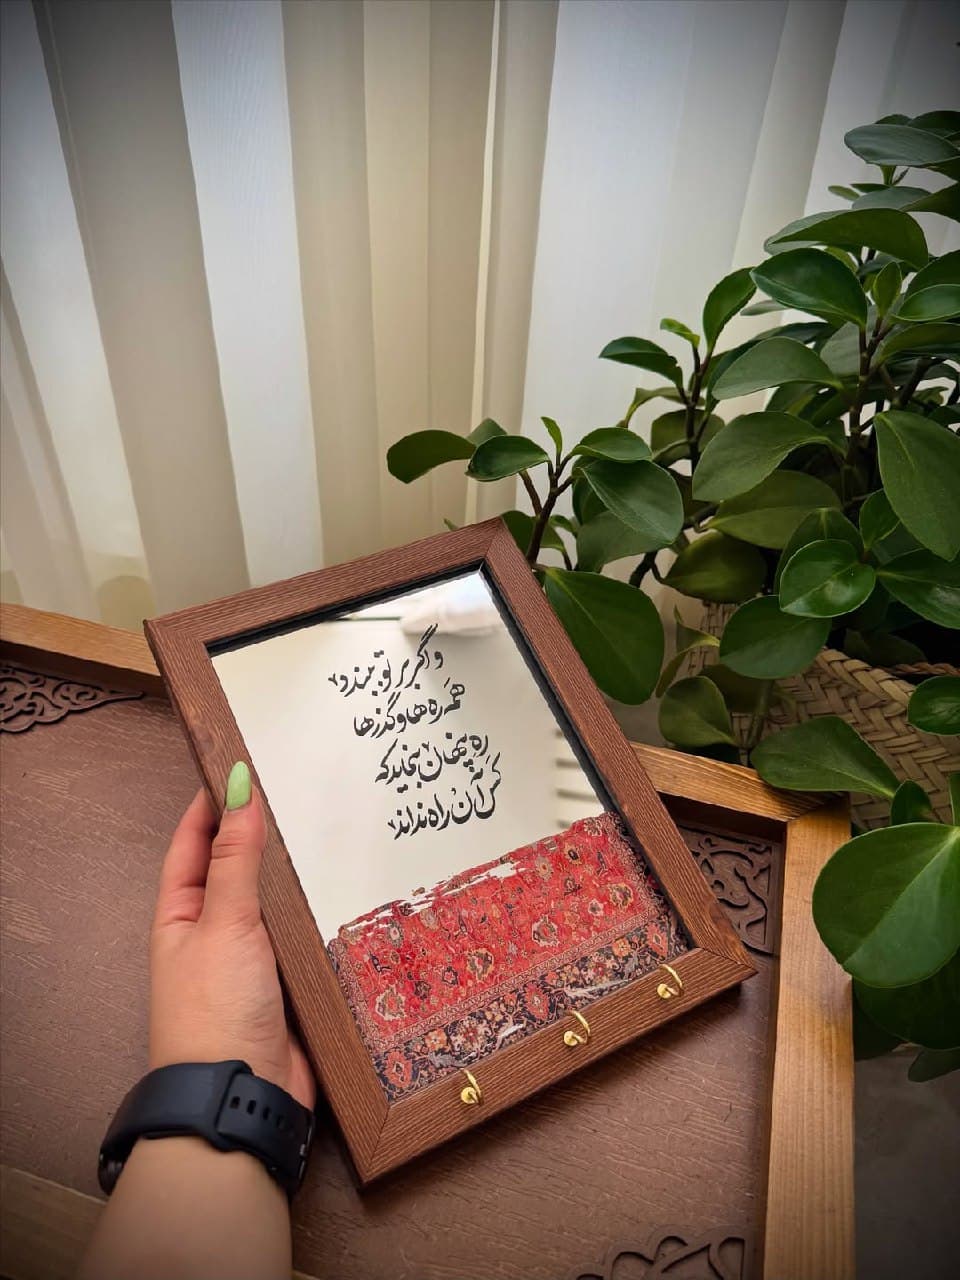 و اگر بر تو ببندد
همه ره‌ها و گذرها
ره پنهان بنماید که
کس آن راه نداند